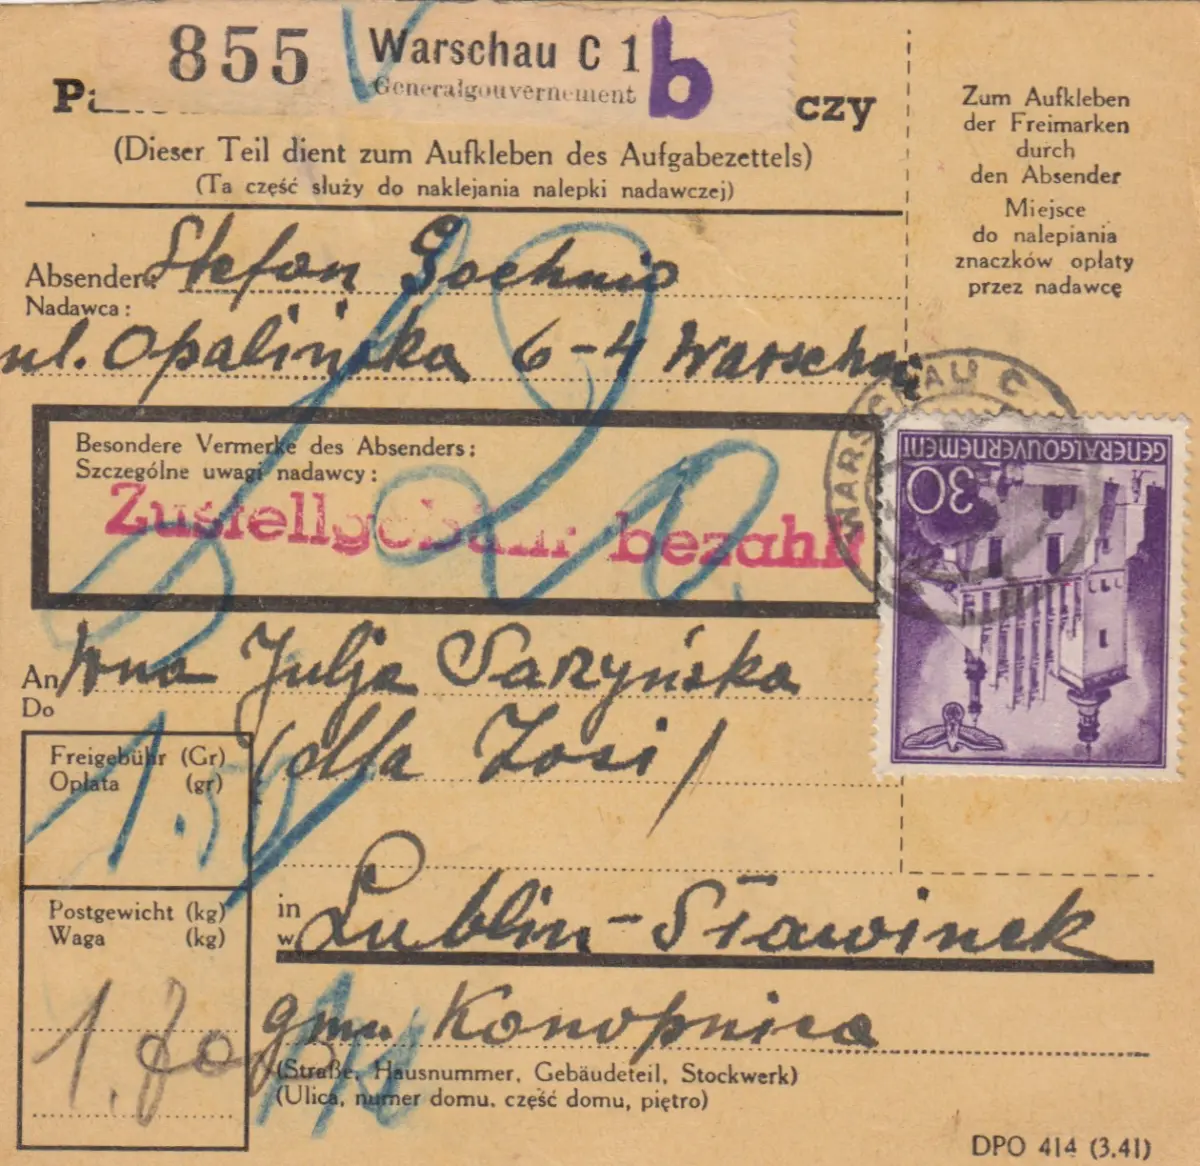 855 Warschau C 1 b
Generalgouvernement
czy
(Dieser Teil dient zum Aufkleben des Aufgabezettels)
(Ta część służy do naklejania nalepki nadawczej)
Zum Aufkleben
der Freimarken
durch
den Absender
Miejsce
do nalepiania
znaczków opłaty
przez nadawcę
Absender: Stefan
Nadawca:
ul. Opalińska 6-4 Warschau
WARSCHAU C
GENERALGOUVERNEMENT
30
Besondere Vermerke des Absenders:
Szczególne uwagi nadawcy:
Zustellgebühr bezahlt
20.
An Wna Julja Saryńska
Do
(dla Zosi)
Freigebühr (Gr)
Opłata (gr)
1.50
Postgewicht (kg)
Waga (kg)
in Lublin-Sławinek
w
gm. Konopnica
(Straße, Hausnummer, Gebäudeteil, Stockwerk)
(Ulica, numer domu, część domu, piętro)
DPO 414 (3.41)